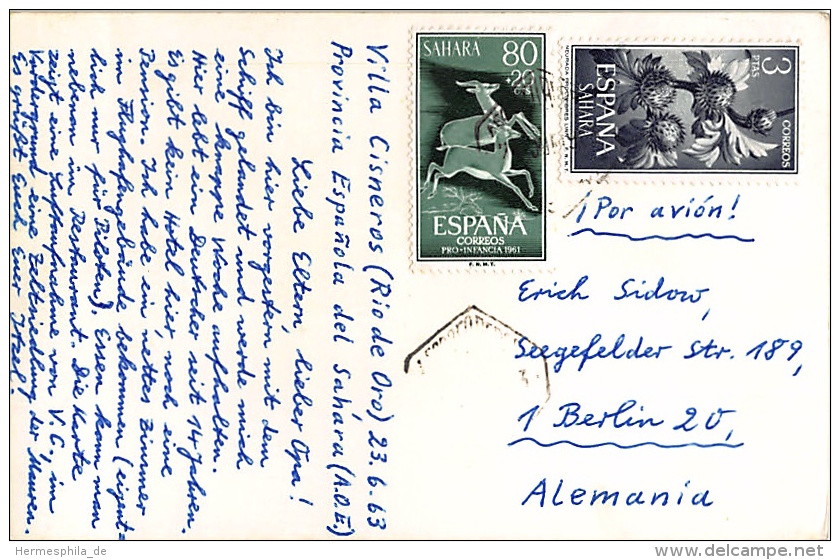 Villa Cisneros (Rio de Oro) 23.6.63
Provincia Española del Sáhara (A.O.E.)
Liebe Eltern, lieber Opa!
Ich bin hier vorgestern mit dem
Schiff gelandet und werde mich
eine knappe Woche aufhalten.
Hier lebt ein Deutscher seit 14 Jahren.
Es gibt kein Hotel hier, noch eine
Pension. Ich habe ein nettes Zimmer
im Flughafengebäude bekommen (eigent=
lich nur für Piloten). Essen kann man
nebenan im Restaurant. Die Karte
zeigt eine Luftaufnahme von V.C., im
Vordergrund eine Zeltsiedlung der Mauren.
Es grüßt Euch Euer
SAHARA 80
+20
CTS
ESPAÑA
CORREOS
PRO-INFANCIA 1961
F.N.M.T.
3
PTAS
ESPAÑA
SAHARA
CORREOS
¡Por avión!
Erich Sidow,
Seegefelder Str. 189,
1 Berlin 20,
Alemania
Hermesphila_de
www.delcampe.net